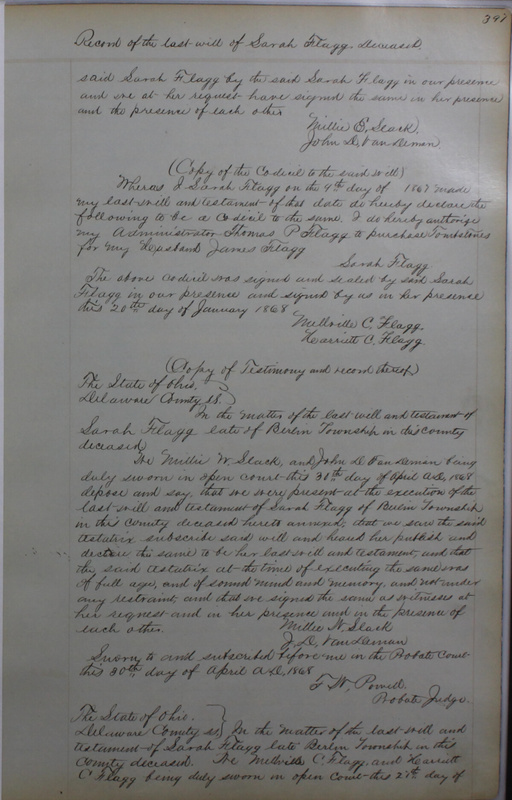 397
Record of the last will of Sarah Flagg. Deceased.
said Sarah Flagg by the said Sarah Flagg in our presence
and we at her request have signed the same in her presence
and the presence of each other
Millie E. Slack.
John D. Van Deman.
(Copy of the Codicil to the said will)
Wheras I Sarah Flagg on the 4th day of 1867 made
my last will and testament of that date do hereby declare the
following to be a codicil to the same. I do hereby authorize
my Administrator Thomas P Flagg to purchase Tombstones
for my Husband James Flagg
Sarah Flagg
The above codicil was signed and sealed by said Sarah
Flagg in our presence and signed by us in her presence
this 20th day of January 1868
Millville C. Flagg.
Harriett C. Flagg
(Copy of Testimony and record thereof)
The State of Ohio.
Delaware County ss.
In the matter of the last will and testament of
Sarah Flagg late of Berlin Township in this county
deceased
We Millie W. Slack, and John D Van Deman being
duly sworn in open court this 30th day of April A.D. 1868
depose and say, that we were present at the execution of the
last will and testament of Sarah Flagg of Berlin Township
in this county deceased hereto annexed, that we saw the said
testatrix subscribe said will and heard her publish and
declare the same to be her last will and testament, and that
the said testatrix at the time of executing the same was
of full age, and of sound mind and memory, and not under
any restraint, and that we signed the same as witnesses at
her request and in her presence and in the presence of
each other.
Millie W. Slack
J. D. Van Deman
Sworn to and subscribed before me in the Probate Court
this 30th day of April A.D. 1868
T. W. Powell.
Probate Judge.
The State of Ohio.
Delaware County ss. In the matter of the last will and
testament of Sarah Flagg late Berlin Township in this
County deceased. We Millville C. Flagg and Harriett
C Flagg being duly sworn in open court this 27th day of